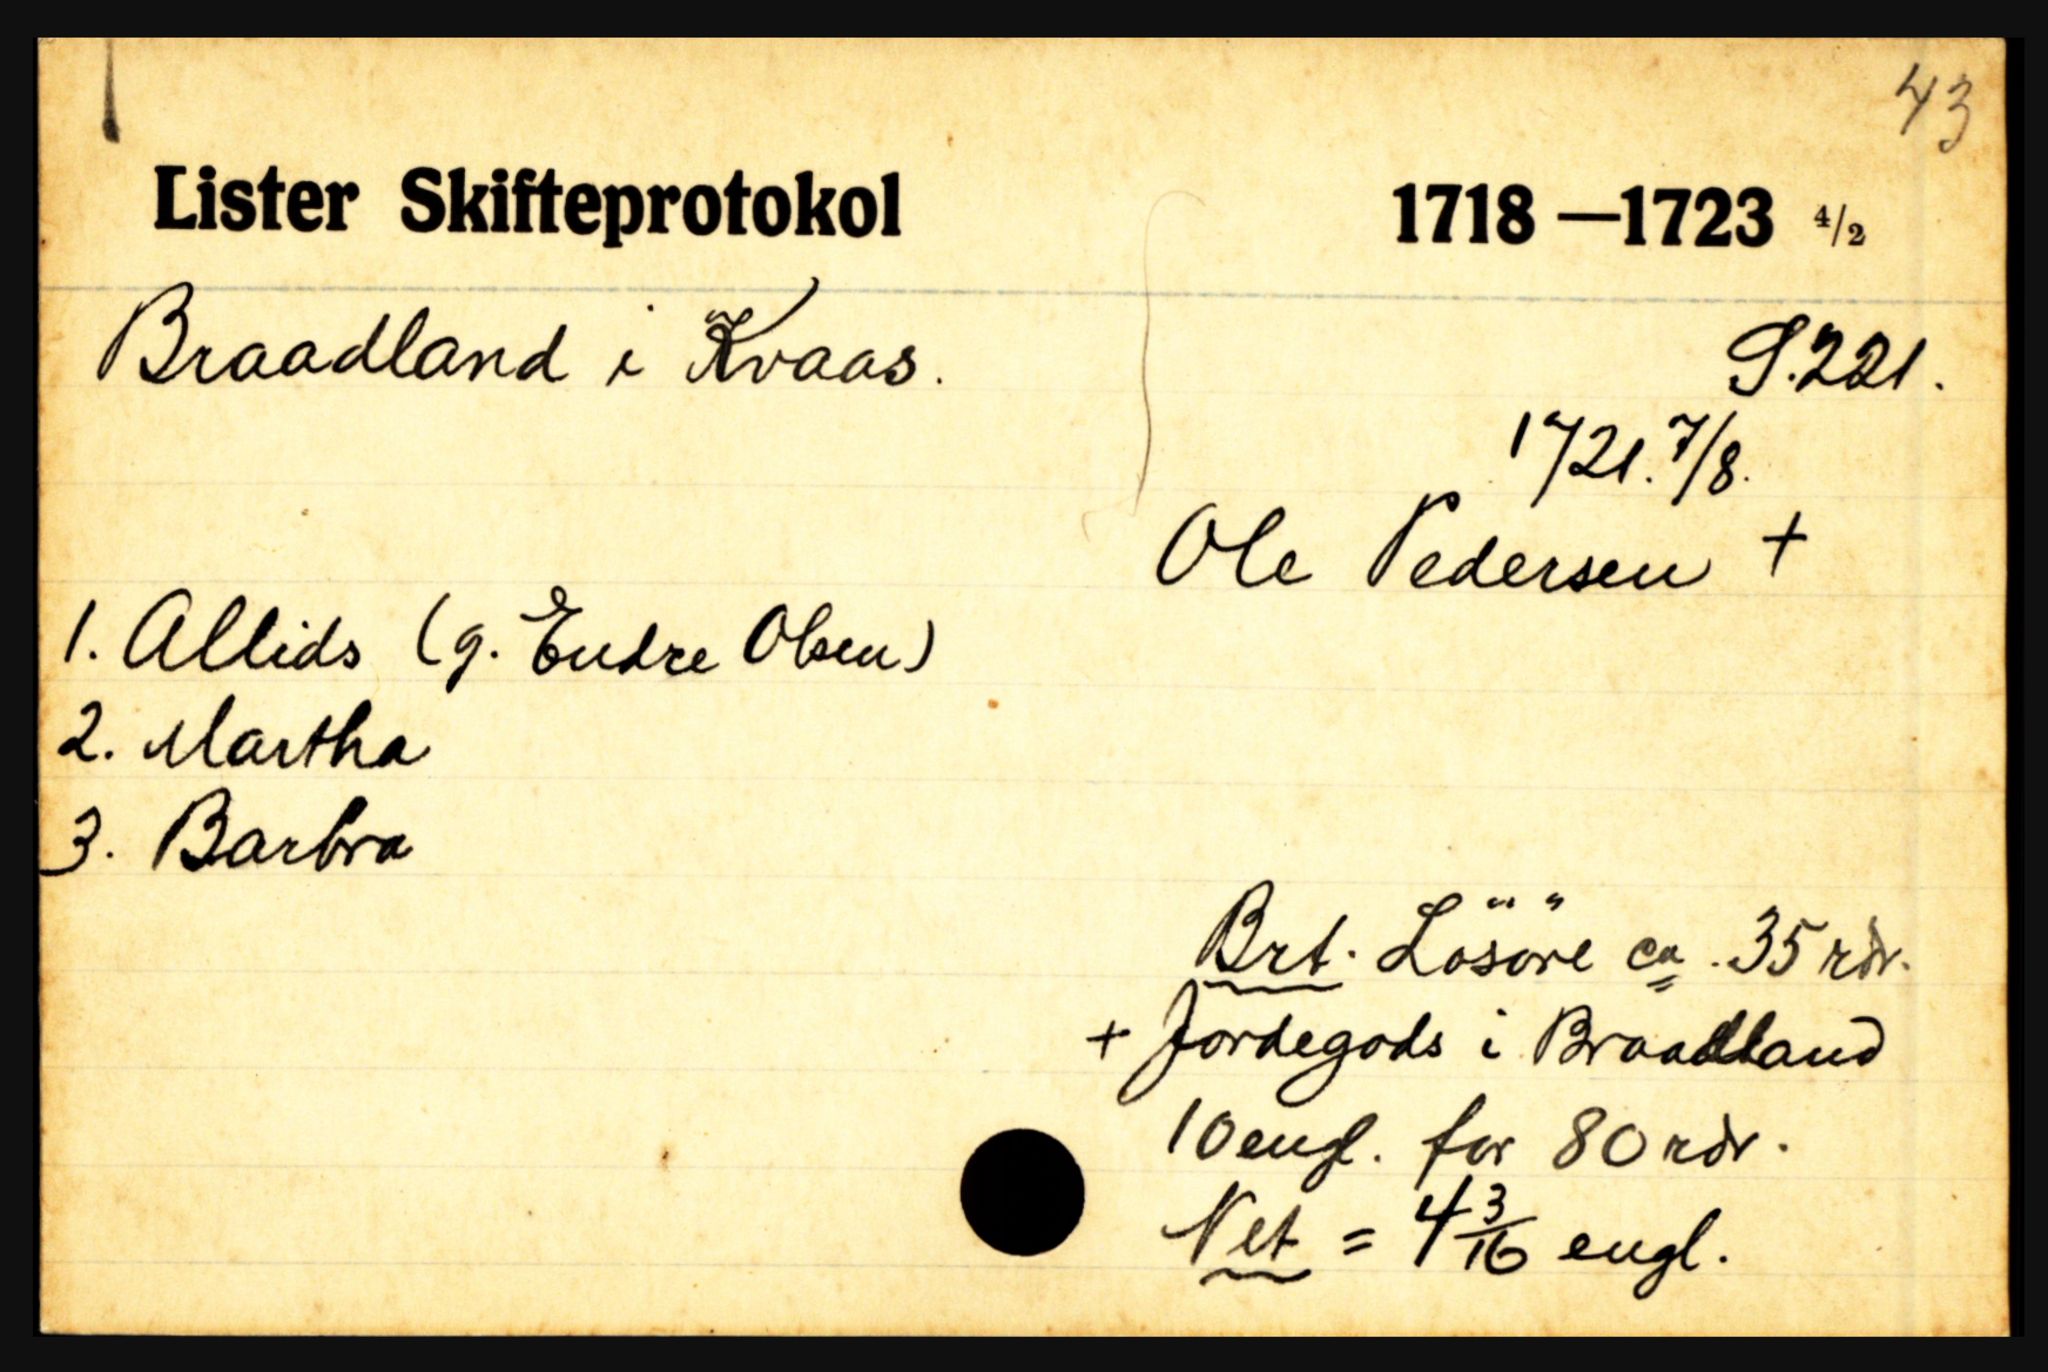 43
Lister Skifteprotokol 1718—1723 4/2
Braadland i Kvaas. S.221.
1721. 7/8.
Ole Pedersen +
1. Allids (g. Endre Olsen)
2. Martha
3. Barbra
Brt. Lösöre ca. 35 rdr.
+ Jordegods i Braadland
10 engl. for 80 rdr.
Net = 4 3/16 engl.